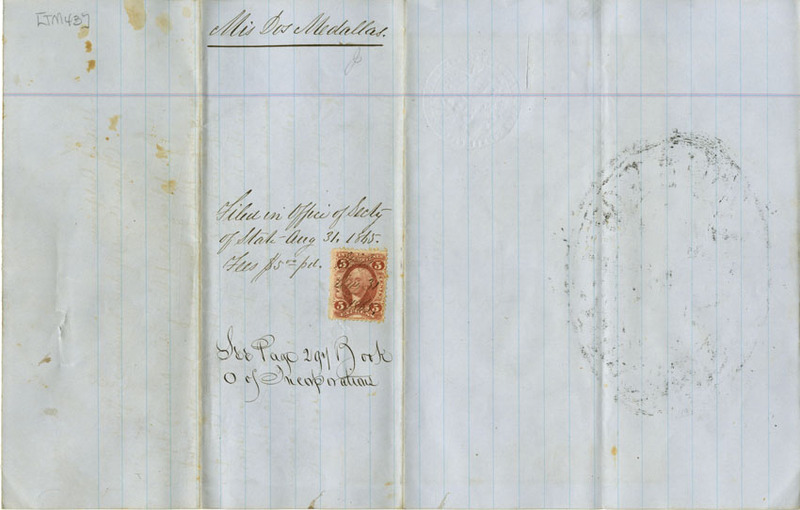 [JM437]
Mis Dos Medallas.
Filed in Office of Secty
of State Aug 31. 1865.
Fees $5 00 pd.
5 5
5 5
See Page 297 Book
O of Incorporations